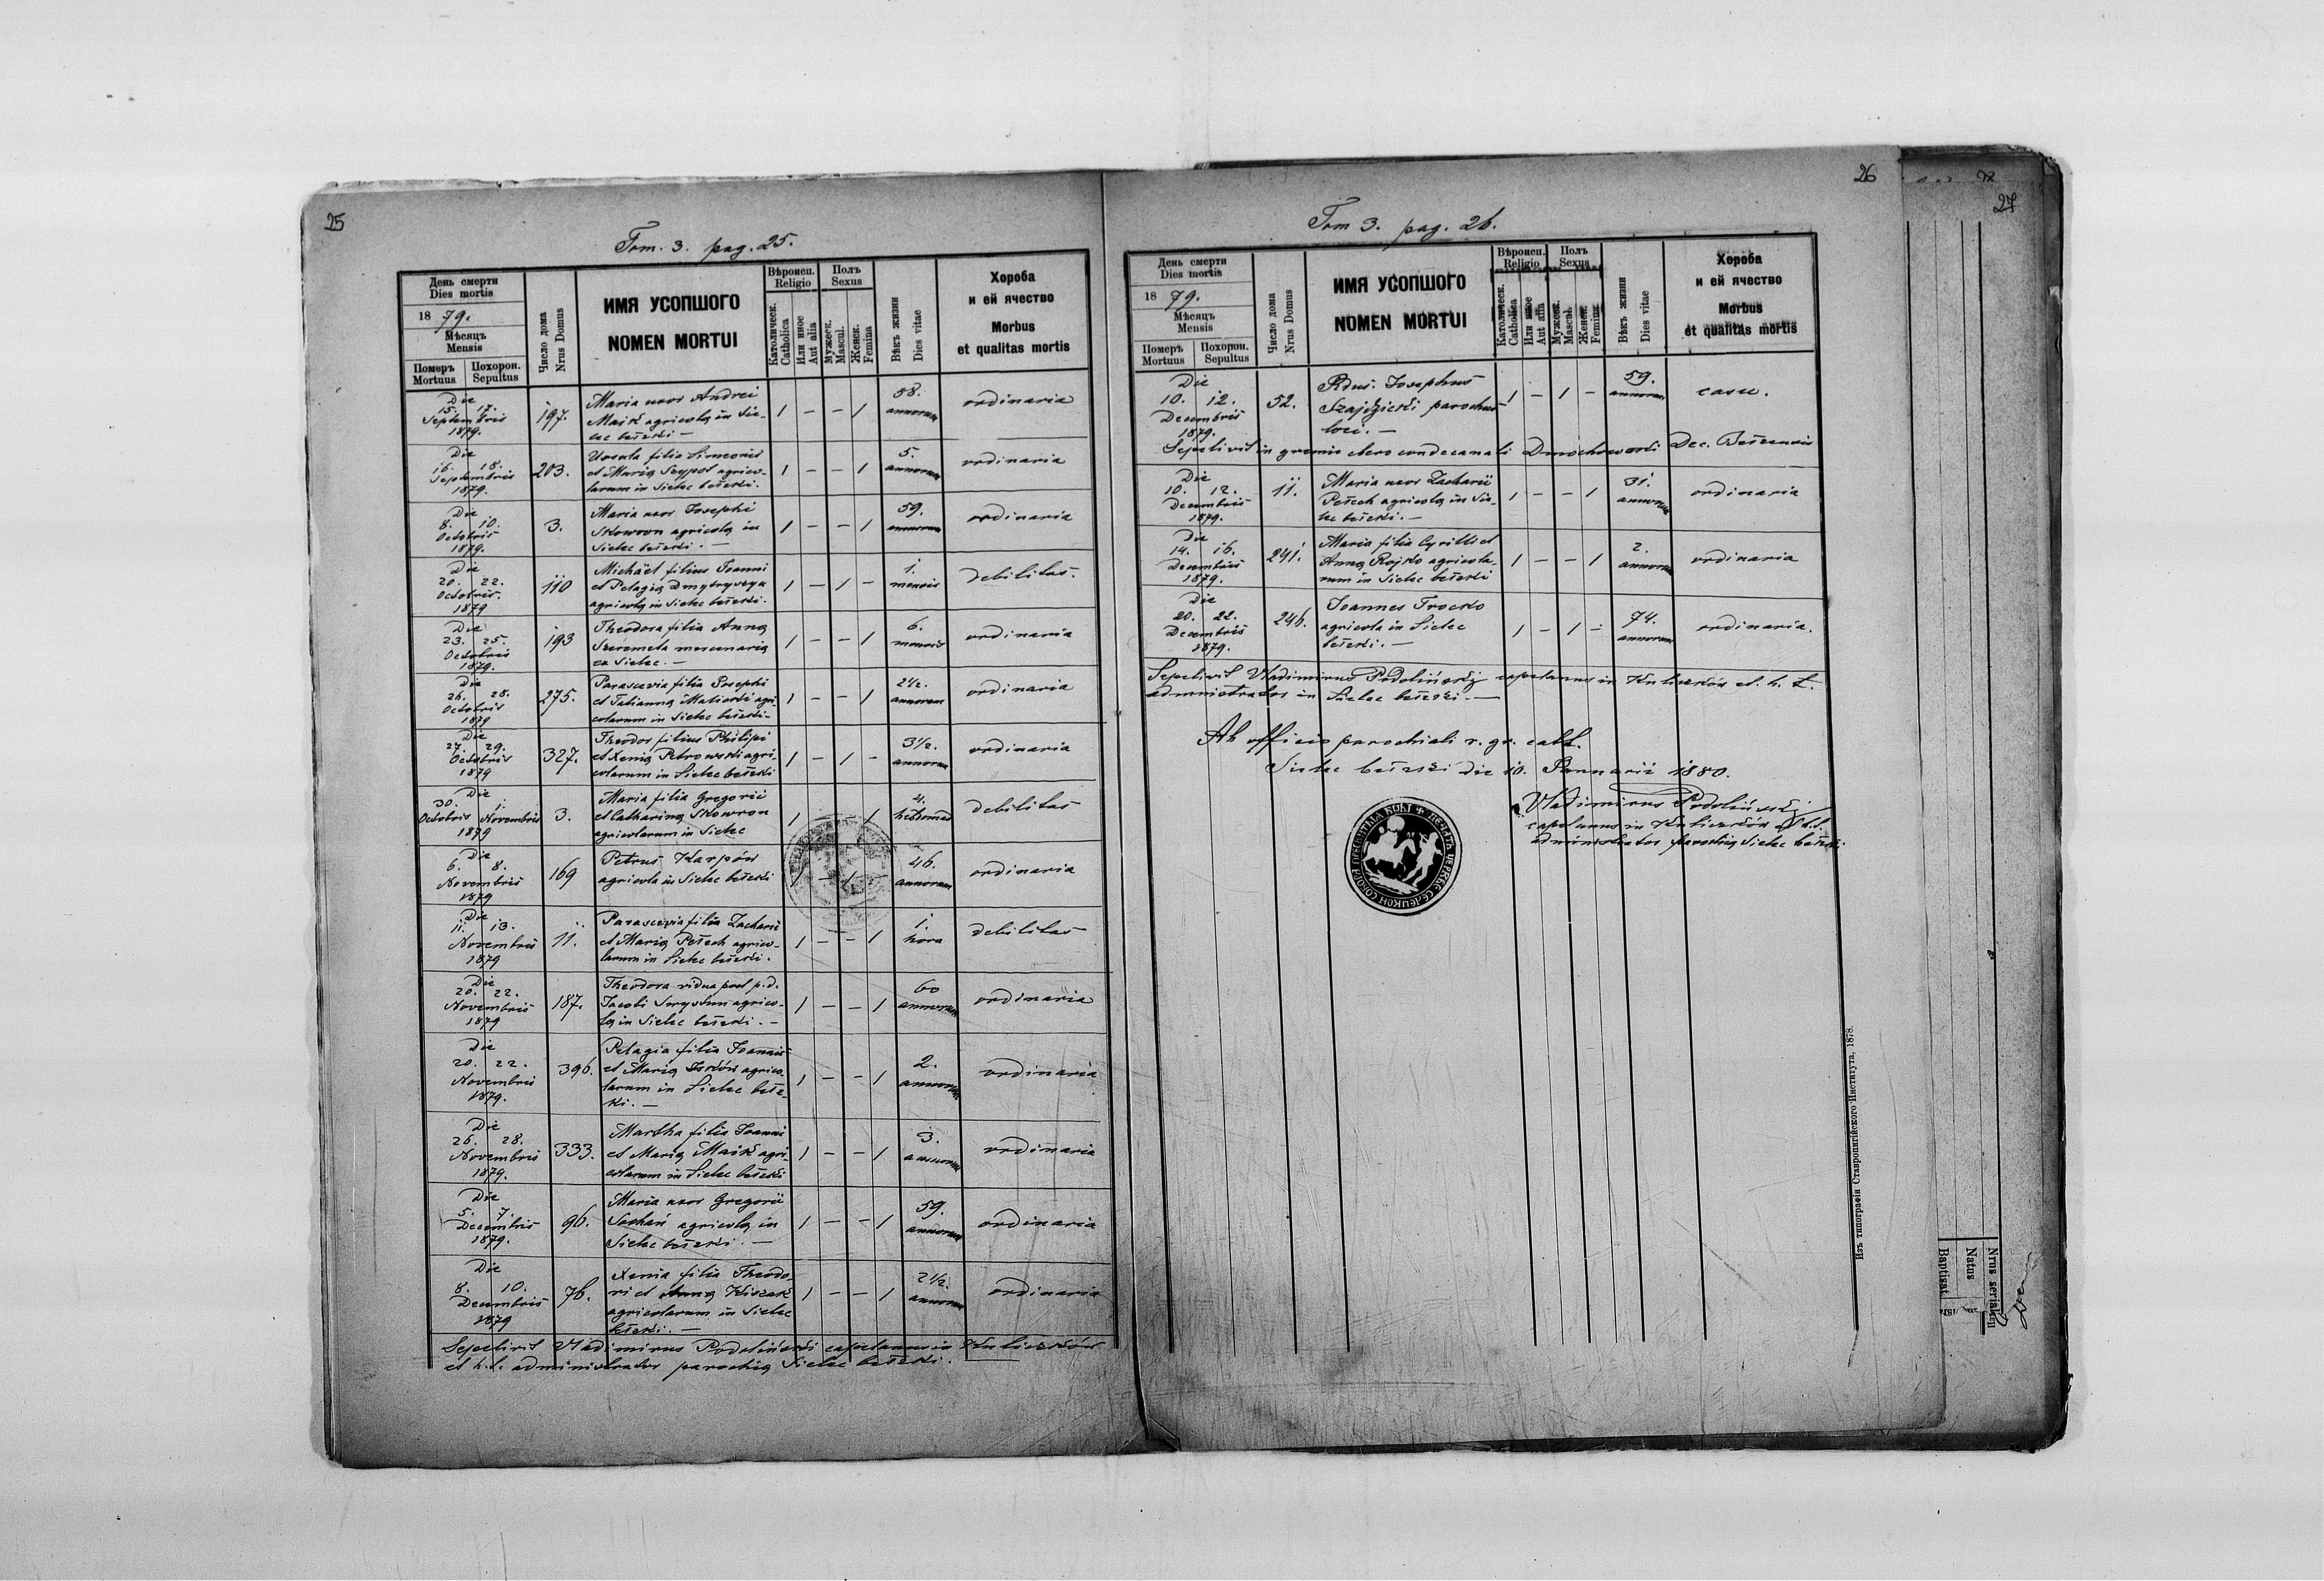 25
Tom. 3. pag. 25.
День смерти
Dies mortis
1879.
Мѣсяцъ
Mensis
Померъ
Mortuus
Похорон.
Sepultus
Число дома
Nrus Domus
ИМЯ УСОПШОГО
NOMEN MORTUI
Вѣроисп.
Religio
Католическ.
Catholica
Или иное
Aut alia
Полъ
Sexus
Мужеск.
Mascul.
Женск.
Femina
Вѣкъ жизни
Dies vitae
Хороба
и ей ячество
Morbus
et qualitas mortis
Die
15. 17.
Septembris
1879.
197.
Maria uxor Andrei
Maik agricolą in Sie-
lec bełzki —
1 – – 1
58.
annorum
ordinaria
Die
16. 18.
Septembris
1879.
203.
Ursula filia Simeonis
et Marią Szypot agrico-
larum in Sielec bełzki.
1 – – 1
5.
annorum
ordinaria
Die
8. 10.
Octobris
1879.
3.
Maria uxor Josephi
Skowron agricolą in
Sielec bełzki. —
1 – – 1
59.
annorum
ordinaria
Die
20. 22.
Octobris.
1879
110
Michaël filius Joanni
et Pelagią Dmytryszyn
agricolą in Sielec bełzki.
1 – 1 –
1.
mensis
debilitas.
Die
23. 25.
Octobris
1879.
193
Theodora filia Anną
Szeremeta mercenarią
ex Sielec. —
1 – – 1
6.
mensis
ordinaria
Die
26. 28.
Octobris
1879
275.
Parascevia filia Josephi
et Tatianną Malicki agri-
colarum in Sielec bełzki –
1 – – 1
2½.
annorum
ordinaria
Die
27. 29.
Octobris
1879
327.
Theodor filius Philipi
et Xenią Petrowski agri-
colarum in Sielec bełzki
1 – 1 –
3½.
annorum
ordinaria
Die
30. 1.
Octobris Novembris
1879
3.
Maria filia Gregorii
et Catharina Skowron
agricolarum in Sielec
1 – – 1
4.
hebdomad
debilitas
Die
6. 8.
Novembris
1879
169
Petrus Karpów
agricola in Sielec bełzki
1 – 1 –
46.
annorum
ordinaria
Die
11. 13.
Novembris
1879
11.
Parascevia filia Zacharii
et Marią Pełech agrico-
larum in Sielec bełzki.
1 – – 1
1.
hora
debilitas
Die
20. 22.
Novembris
1879
187.
Theodora vidua post p.d.
Jacobi agrico-
lą in Sielec bełzki. –
1 – – 1
60
annorum
ordinaria
Die
20. 22.
Novembris
1879.
396.
Pelagia filia Joannis
et Marią agrico-
larum in Sielec bełz-
ki. —
1 – – 1
2.
annorum
ordinaria
Die
26. 28.
Novembris
1879.
333.
Martha filia Joanni
et Marią Maik agri-
colarum in Sielec bełzki
1 – – 1
3.
annorum
ordinaria
Die
5. 7.
Decembris
1879.
96.
Maria uxor Gregorii
Sochań agricolą in
Sielec bełzki. —
1 – – 1
59.
annorum
ordinaria
Die
8. 10.
Decembris
1879
76.
Xenia filia Theodo-
ri et Anną Kiszak
agricolarum in Sielec
bełzki. —
1 – – 1
2½.
annorum
ordinaria
Sepelivit Vladimirus Podoliński capelanus in Kuliczków
et h.t. administrator parochią Sielec bełzki.
26
Tom 3. pag. 26.
День смерти
Dies mortis
1879.
Мѣсяцъ
Mensis
Померъ
Mortuus
Похорон.
Sepultus
Число дома
Nrus Domus
ИМЯ УСОПШОГО
NOMEN MORTUI
Вѣроисп.
Religio
Католическ.
Catholica
Или иное
Aut alia
Полъ
Sexus
Мужеск.
Mascul.
Женск.
Femina
Вѣкъ жизни
Dies vitae
Хороба
и ей ячество
Morbus
et qualitas mortis
Die
10. 12.
Decembris
1879.
52.
Rdus. Josephus
Szajdzicki parochus
loci. —
1 – 1 –
59.
annorum
casu.
Sepelivit in gremio clero condecanali Dmochowski Dec. Bełzensis
Die
10. 12.
Decembris
1879.
11.
Maria uxor Zacharii
Pełech agricolą in Sie-
lec bełzki. —
1 – – 1
31.
annorum
ordinaria
Die
14. 16.
Decembris
1879.
241.
Maria filia Cyrilli et
Anną Rojko agricola-
rum in Sielec bełzki
1 – – 1
2.
annorum
ordinaria
Die
20. 22.
Decembris
1879.
246.
Joannes Trocko
agricola in Sielec
bełzki. —
1 – 1 –
74.
annorum
ordinaria.
Sepelivit Vladimirus Podoliński capelanus in Kuliczków et. h. t.
administrator in Sielec bełzki. —
Ab officio parochiali r. gr. cath.
Sielec bełzki die 10. Januarii 1880.
Vladimirus Podoliński
capelanus in Kuliczków et h.t.
administrator parochią Sielec bełzki.
Изъ типографіи Ставропигійского Института, 1878.
27
Nrus serialis
Natus
Baptisat.